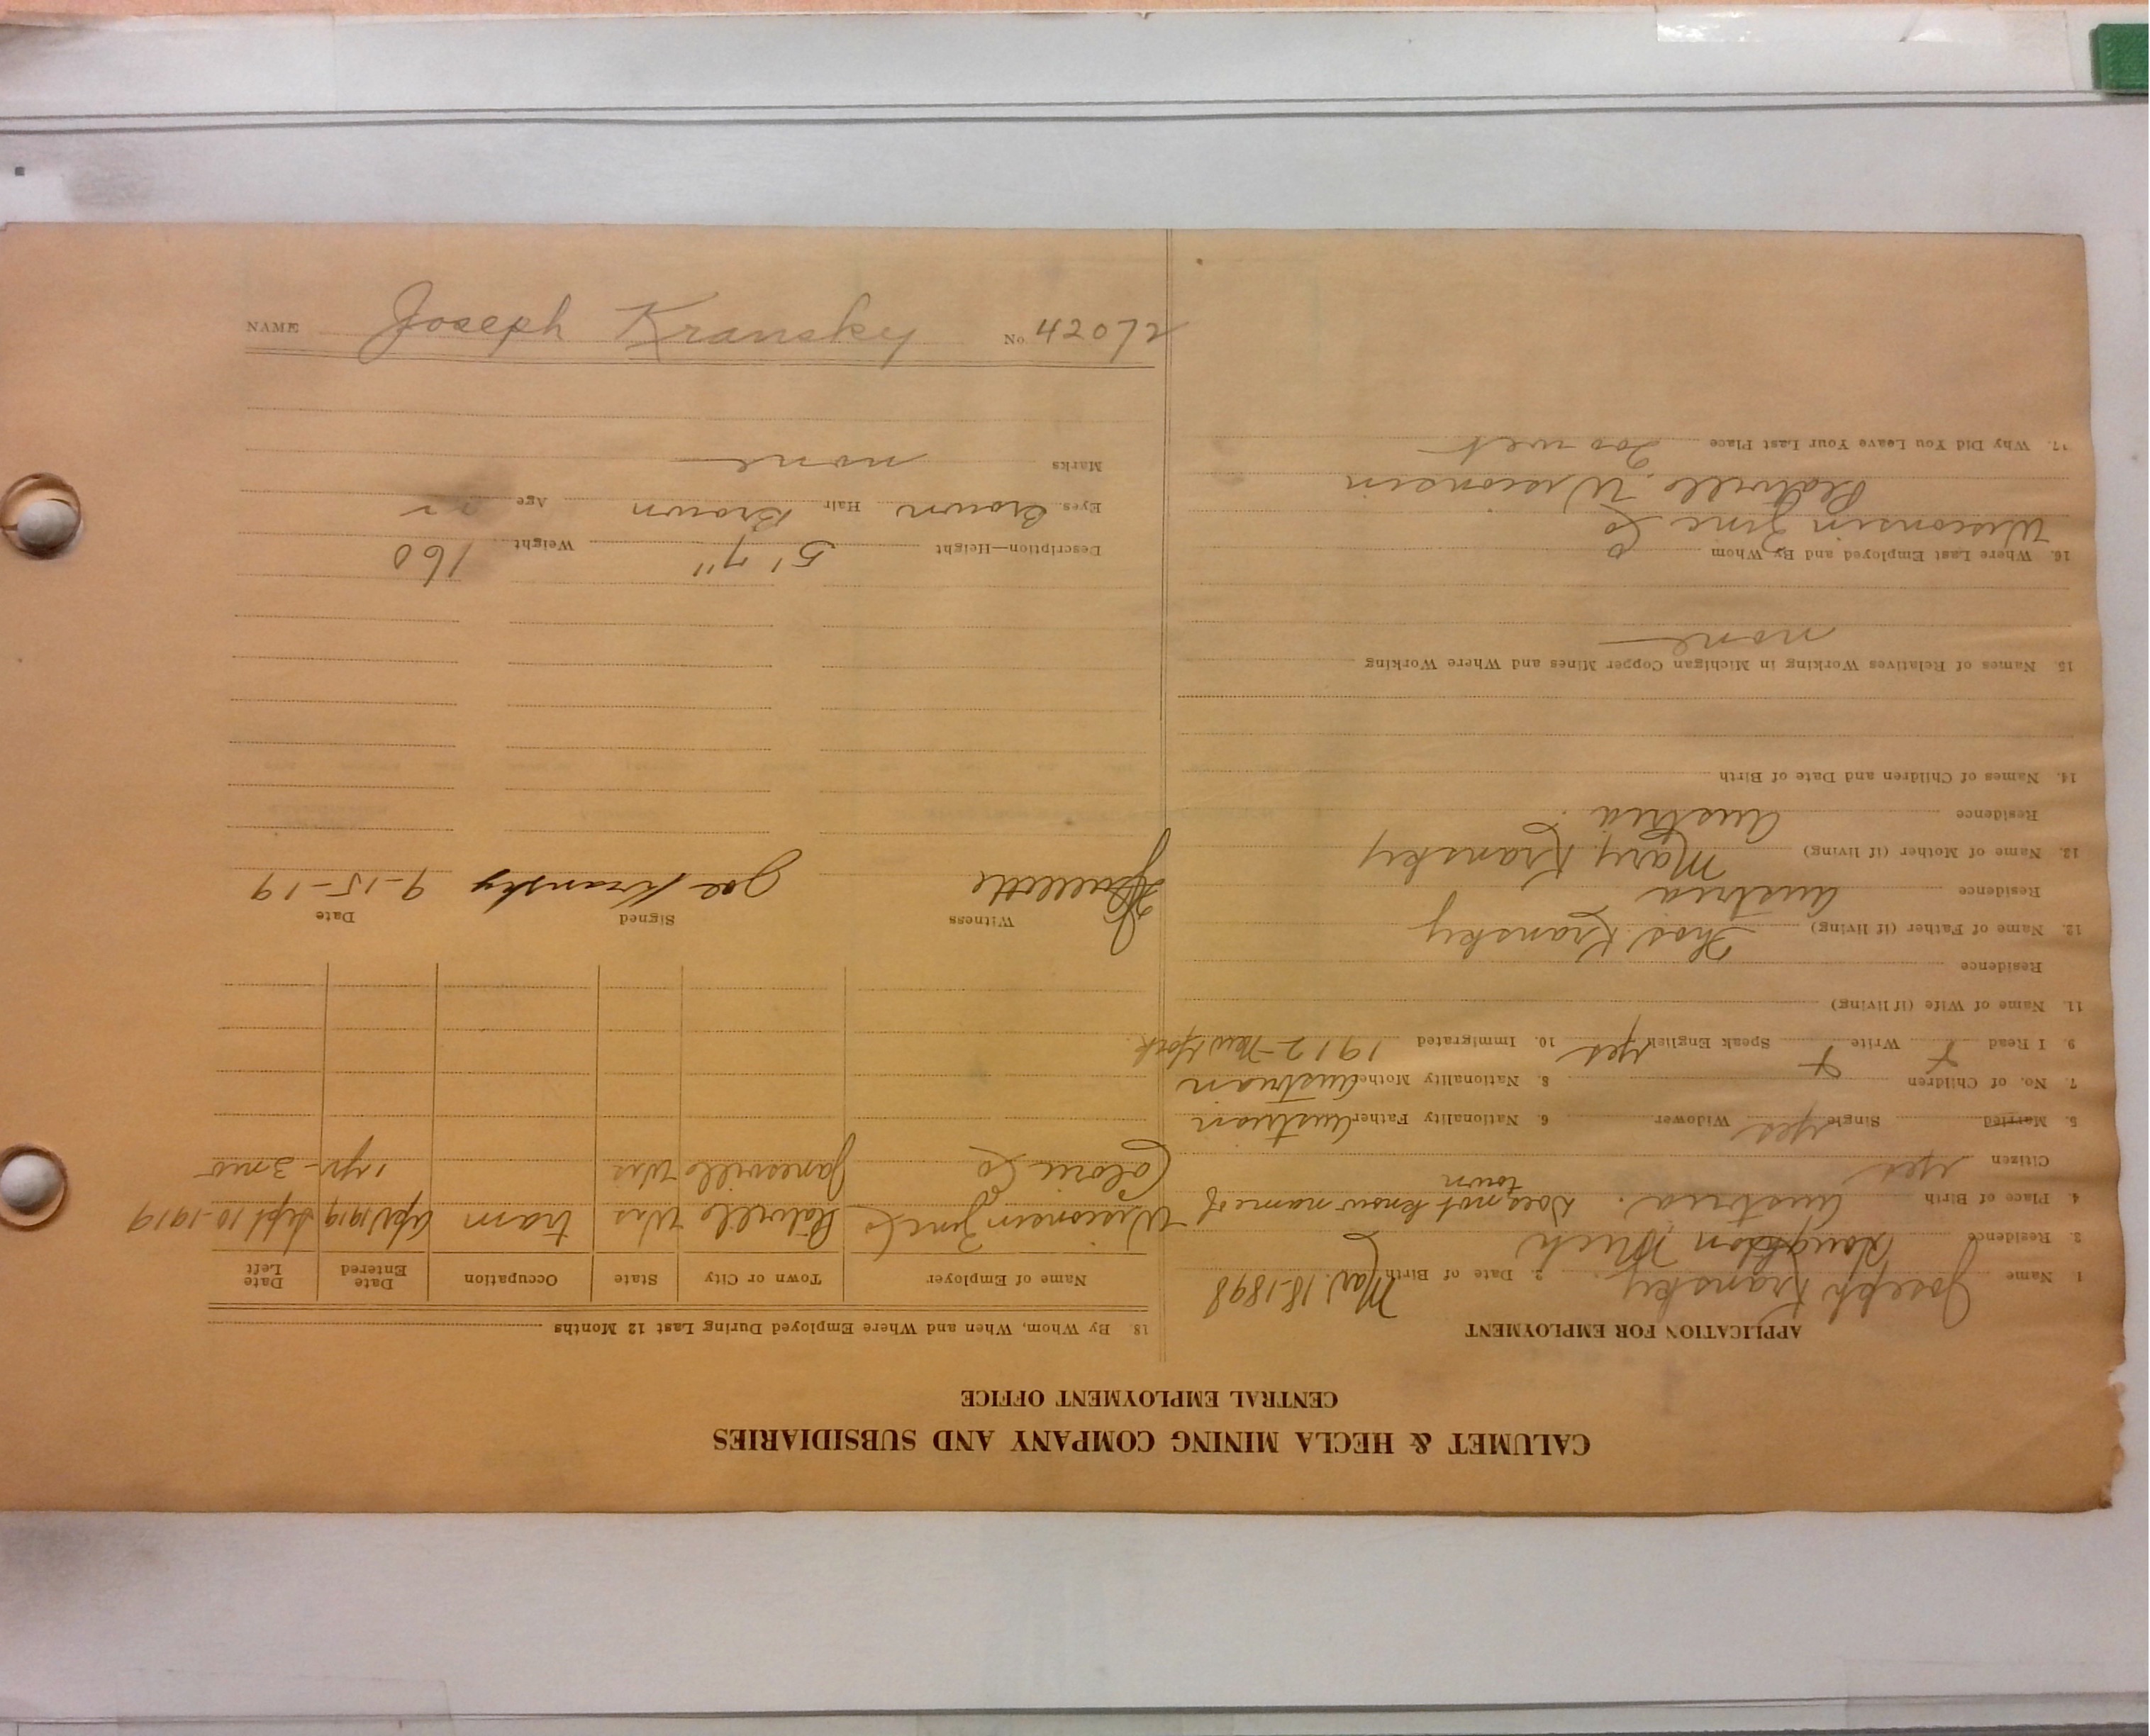 CALUMET & HECLA MINING COMPANY AND SUBSIDIARIES
CENTRAL EMPLOYMENT OFFICE
APPLICATION FOR EMPLOYMENT
1. Name Joseph Kransky 2. Date of Birth Mar. 18-1898
3. Residence Houghton Mich
4. Place of Birth Austria. Does not know name of
town
Citizen yes
5. Married Single yes Widower 6. Nationality Father Austrian
7. No. of Children 8. Nationality Mother Austrian
9 I Read X Write X Speak English yes 10. Immigrated 1912-New York
11. Name of Wife (if living)
Residence
12. Name of Father (if living) Thos. Kransky
Residence Austria
13. Name of Mother (if living) Mary Kransky
Residence Austria
14. Names of Children and Date of Birth
15. Names of Relatives Working in Michigan Copper Mines and Where Working
none
16. Where Last Employed and By Whom
Wisconsin Zinc Co
Platville, Wisconsin
17. Why Did You Leave Your Last Place Too wet
18. By Whom, When and Where Employed During Last 12 Months
Name of Employer Town or City State Occupation Date Entered Date Left
Wisconsin Zinc Co Platville Wis tram Apr 1919 Sept 10-1919
Caloric Co Janesville Wis 1 yr- 3 mo
Witness Signed Date
Joe Kransky 9-15-19
Description—Height 5' 7" Weight 160
Eyes Brown Hair Brown Age
Marks none
NAME Joseph Kransky No 42072